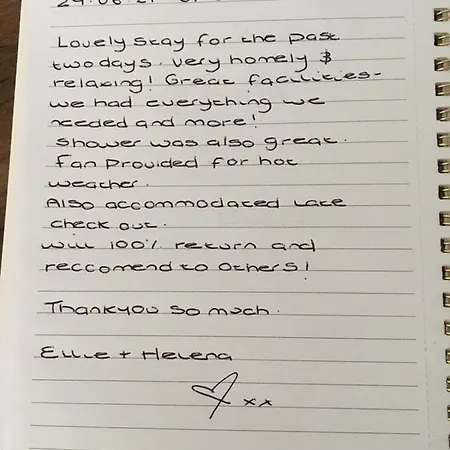 Lovely stay for the past
two days. very homely &
relaxing! Great facilities-
we had everything we
needed and more!
Shower was also great.
Fan provided for hot
weather.
Also accommodated late
check out.
Will 100% return and
reccomend to others!
Thankyou so much.
Ellie + Helena
xx